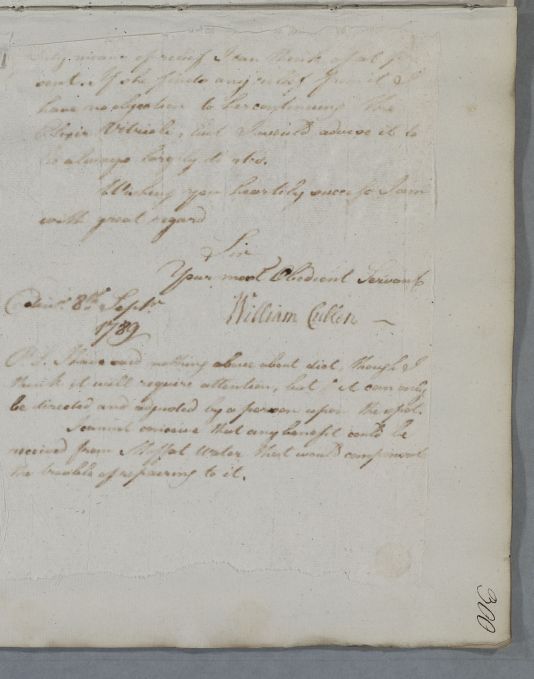 only means of relief I can think of at pre
sent. If she finds any relief from it I
have no objection to her continuing the
Elixir Vitriolic, but I would advise it to
be always largely diluted.
Wishing you heartily success I am
with great regard
Sir
Your most Obedient Servant
Edinr. 8th Septr.
1789
William Cullen
P.S. I have said nothing above about diet, though I
think it will require attention, but it can only
be directed and adjusted by a person upon the spot.
I cannot conceive that any benefit could be
received from Moffat Water that would compensate
the trouble of repairing to it.
300